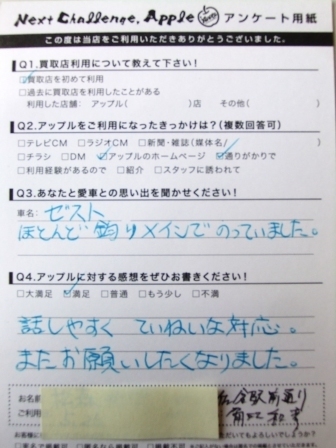 Next Challenge, Apple アンケート用紙
この度は当店をご利用いただきありがとうございました。
Q1.買取店利用について教えて下さい!
☑買取店を初めて利用
□過去に買取店を利用したことがある
利用した店舗: アップル( )店 その他( )
Q2.アップルをご利用になったきっかけは?(複数回答可)
□テレビCM □ラジオCM □新聞・雑誌(媒体名/ )
□チラシ □DM ☑アップルのホームページ ☑通りがかりで
□利用経験があるので □紹介 □スタッフに誘われて
Q3.あなたと愛車との思い出を聞かせください!
車名: ゼスト
ほとんど釣りメインでのっていました。
Q4.アップルに対する感想をぜひお書きください!
□大満足 ☑満足 □普通 □もう少し □不満
話しやすく ていねいな対応。
またお願いしたくなりました。
お名前
ご利用
駅前通り